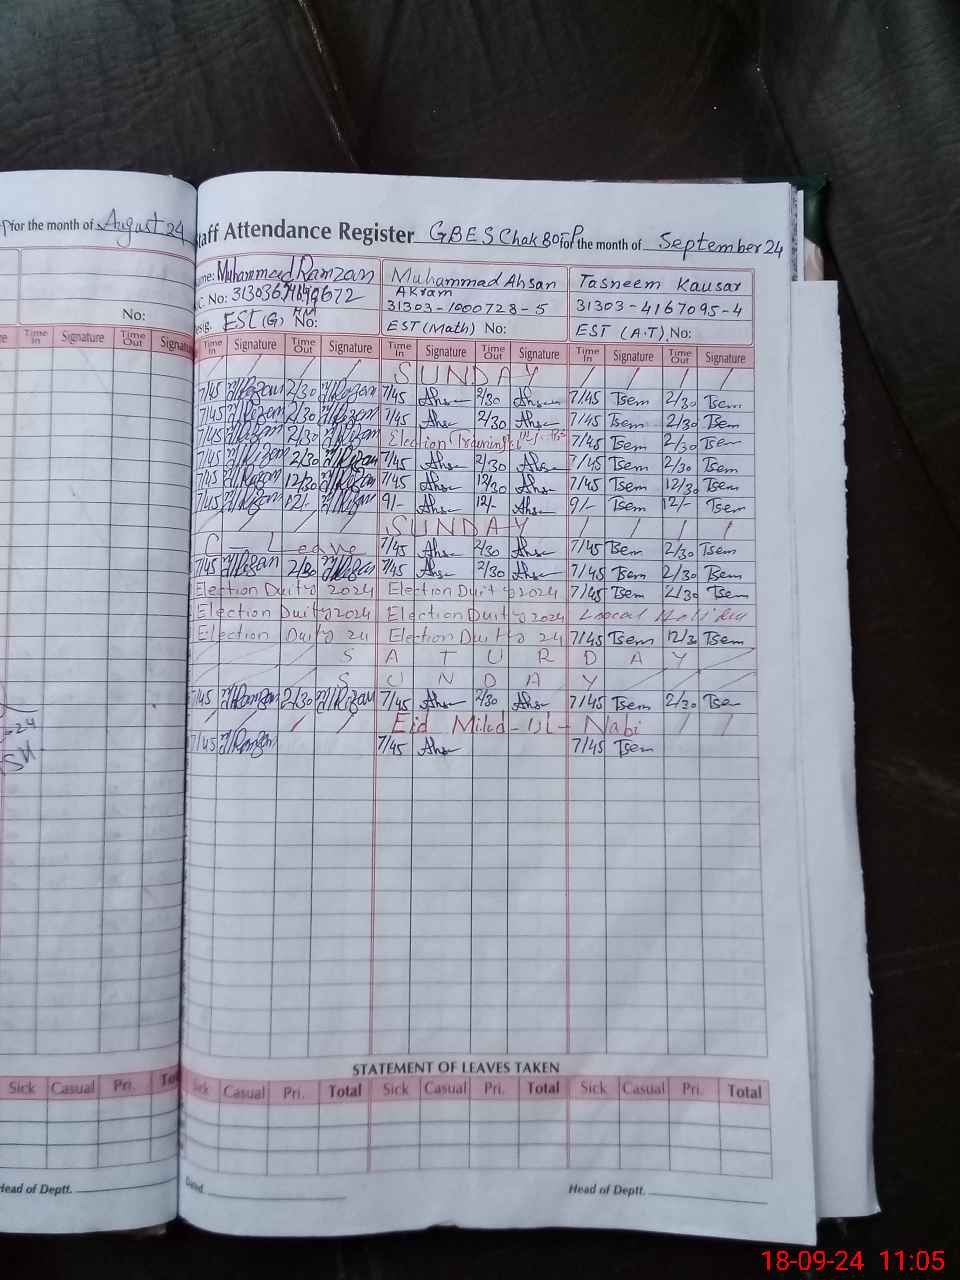 for the month of August 24
Staff Attendance Register GBES Chak 80TP for the month of September 24
Name: Muhammad Ramzan Muhammad Ahsan Akram Tasneem Kausar
C. No: 31303-1000728-5 31303-4167095-4
No: Desig. EST(G) No: EST(Math) No: EST (A.T) No:
Time In Time Out Signature Time In Signature Time Out Signature Time In Signature Time Out Signature Time In Signature Time Out Signature
/ / / / SUNDAY / / / /
7/45 2/30 7/45 Ahsan 2/30 Ahsan 7/45 Tsem 2/30 Tsem
7/45 2/30 7/45 Ahsan 2/30 Ahsan 7/45 Tsem 2/30 Tsem
7/45 2/30 Election Training 7/45 Tsem 2/30 Tsem
7/45 2/30 7/45 Ahsan 2/30 Ahsan 7/45 Tsem 2/30 Tsem
7/45 12/30 7/45 Ahsan 12/30 Ahsan 7/45 Tsem 12/30 Tsem
7/45 12/- 9/- Ahsan 12/- Ahsan 9/- Tsem 12/- Tsem
/ / / / SUNDAY / / / /
C-Leave 7/45 Ahsan 2/30 Ahsan 7/45 Tsem 2/30 Tsem
7/45 2/30 7/45 Ahsan 2/30 Ahsan 7/45 Tsem 2/30 Tsem
Election Duity 2024 Election Duity 2024 7/45 Tsem 2/30 Tsem
Election Duity 2024 Election Duity 2024 Loacal Holiday
Election Duity 24 Election Duity 24 7/45 Tsem 12/30 Tsem
S A T U R D A Y
S U N D A Y
7/45 2/30 7/45 Ahsan 2/30 Ahsan 7/45 Tsem 2/30 Tsem
Eid Milad-Ul-Nabi
7/45 7/45 Ahsan 7/45 Tsem
STATEMENT OF LEAVES TAKEN
Sick Casual Pri. Total Sick Casual Pri. Total Sick Casual Pri. Total Sick Casual Pri. Total
Head of Deptt. Dated Head of Deptt.
18-09-24 11:05